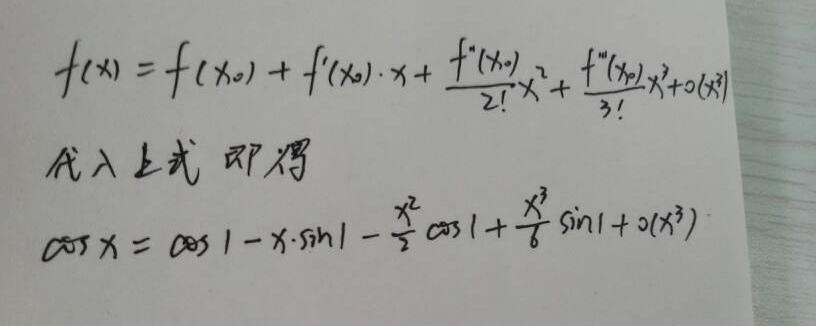 f(x) = f(x₀) + f'(x₀)·x + f''(x₀)/2! x² + f'''(x₀)/3! x³ + o(x³)
代入上式 即得
cos x = cos 1 - x·sin 1 - x²/2 cos 1 + x³/6 sin 1 + o(x³)